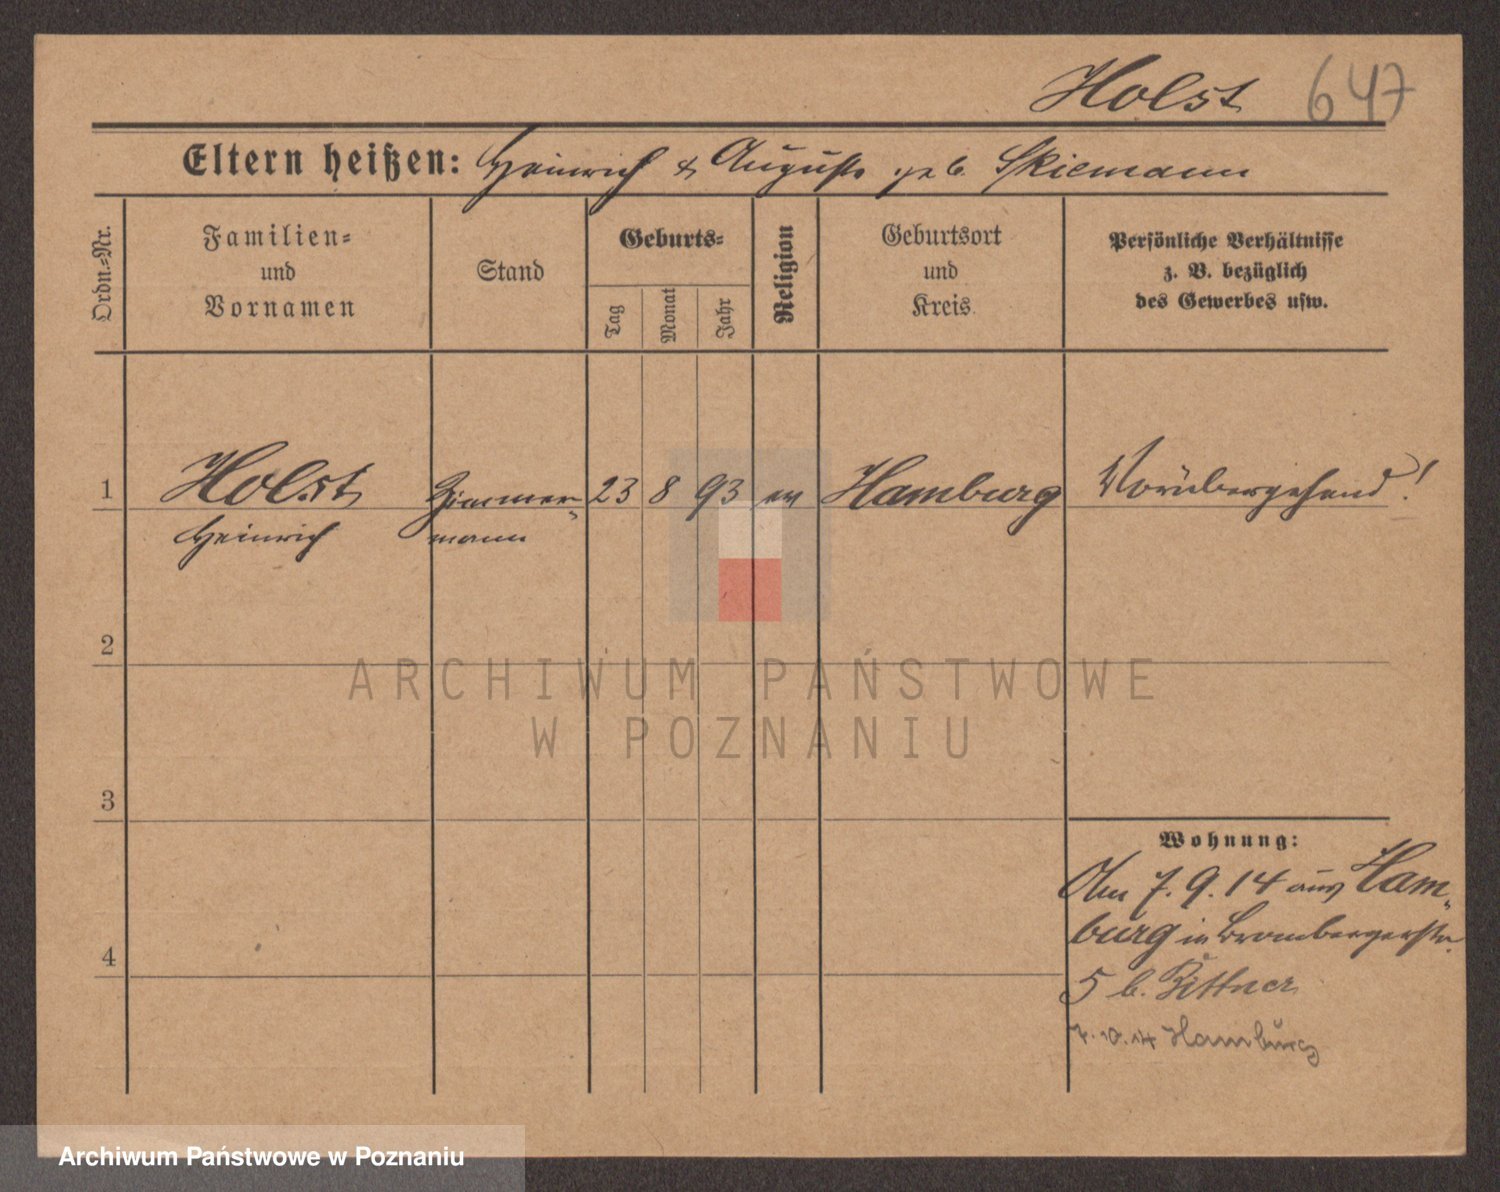 Holst 647
Eltern heißen: Heinrich & Auguste geb. Skiemann
Ordn.-Nr.
Familien-
und
Vornamen
Stand
Geburts-
Tag
Monat
Jahr
Religion
Geburtsort
und
Kreis
Persönliche Verhältnisse
z. B. bezüglich
des Gewerbes usw.
1 Holst Zimmer- 23 8 93 ev Hamburg Vorübergehend!
Heinrich mann
2
3
4
Wohnung:
Am 7. 9. 14 aus Ham-
burg in Brombergerstr.
5 b. Bittner
7.10.14 Hamburg
ARCHIWUM PAŃSTWOWE
W POZNANIU
Archiwum Państwowe w Poznaniu